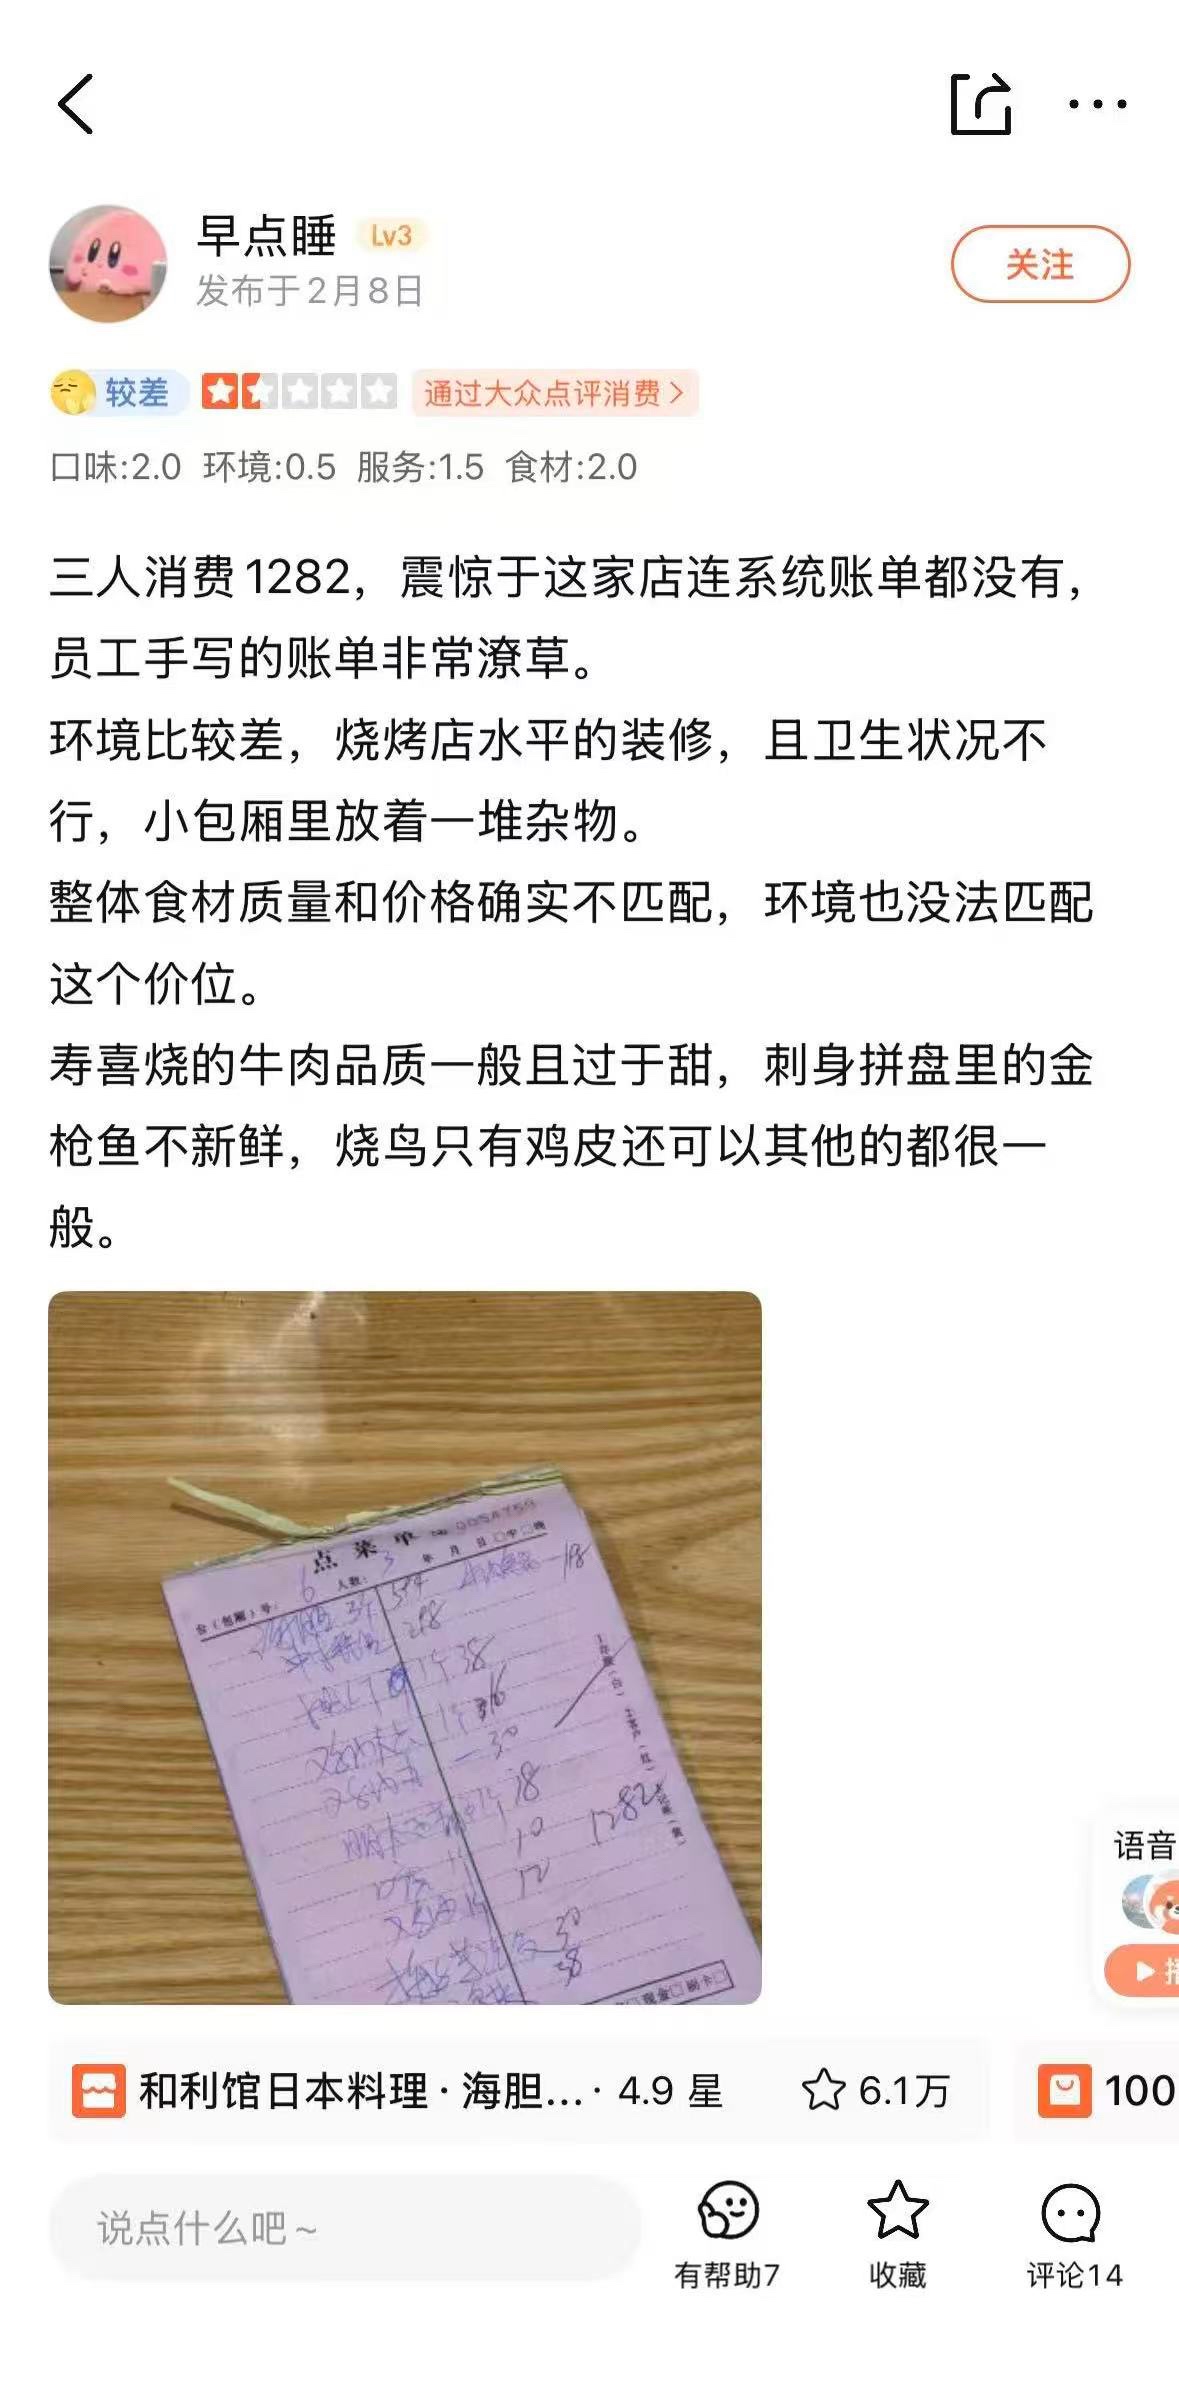 早点睡 Lv3
发布于2月8日
关注
较差 通过大众点评消费
口味:2.0 环境:0.5 服务:1.5 食材:2.0
三人消费1282，震惊于这家店连系统账单都没有，
员工手写的账单非常潦草。
环境比较差，烧烤店水平的装修，且卫生状况不
行，小包厢里放着一堆杂物。
整体食材质量和价格确实不匹配，环境也没法匹配
这个价位。
寿喜烧的牛肉品质一般且过于甜，刺身拼盘里的金
枪鱼不新鲜，烧鸟只有鸡皮还可以其他的都很一
般。
点菜单
年 月 日 □中□晚
台(包厢)号: 6 人数: 3
38
30
18
10
12
30
1282
现金□ 刷卡□
语音
和利馆日本料理·海胆...· 4.9 星 6.1万
100
说点什么吧~
有帮助7
收藏
评论14